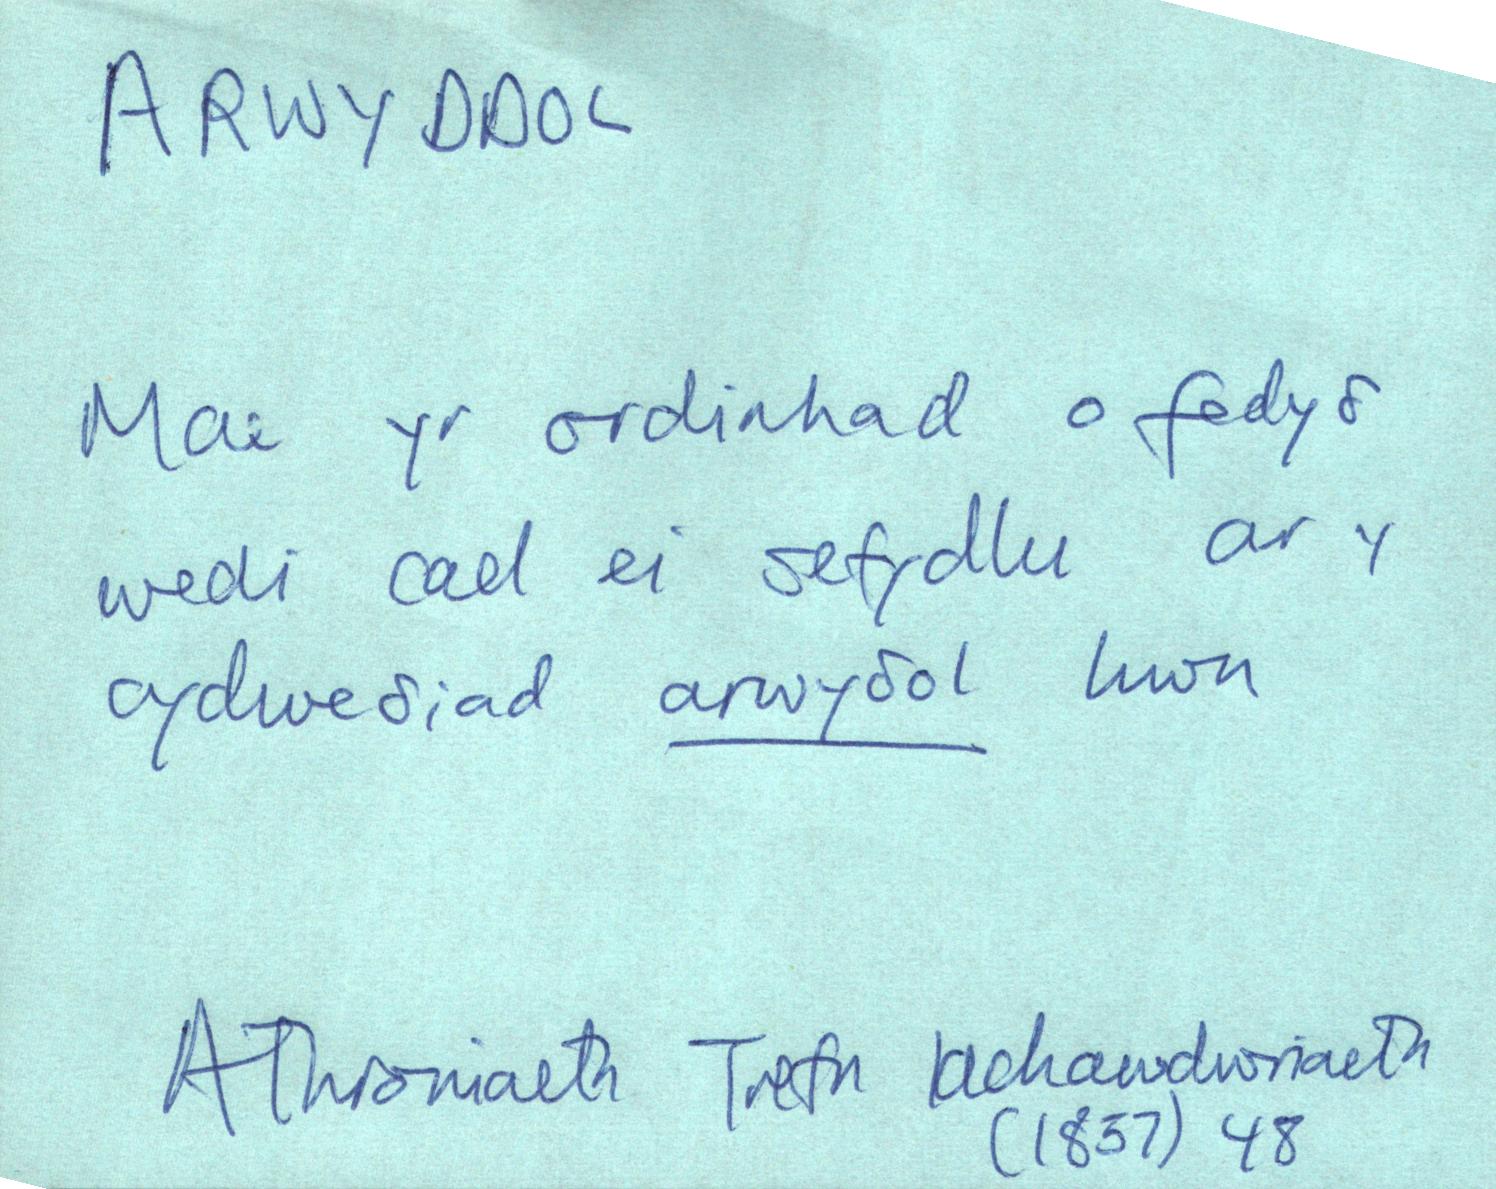 ARWYDDOL
Mae yr ordinhad o fedyδ
wedi cael ei sefydlu ar y
cydweδiad arwyδol hwn
Athroniaeth Trefn Iachawdwriaeth
(1837) 48